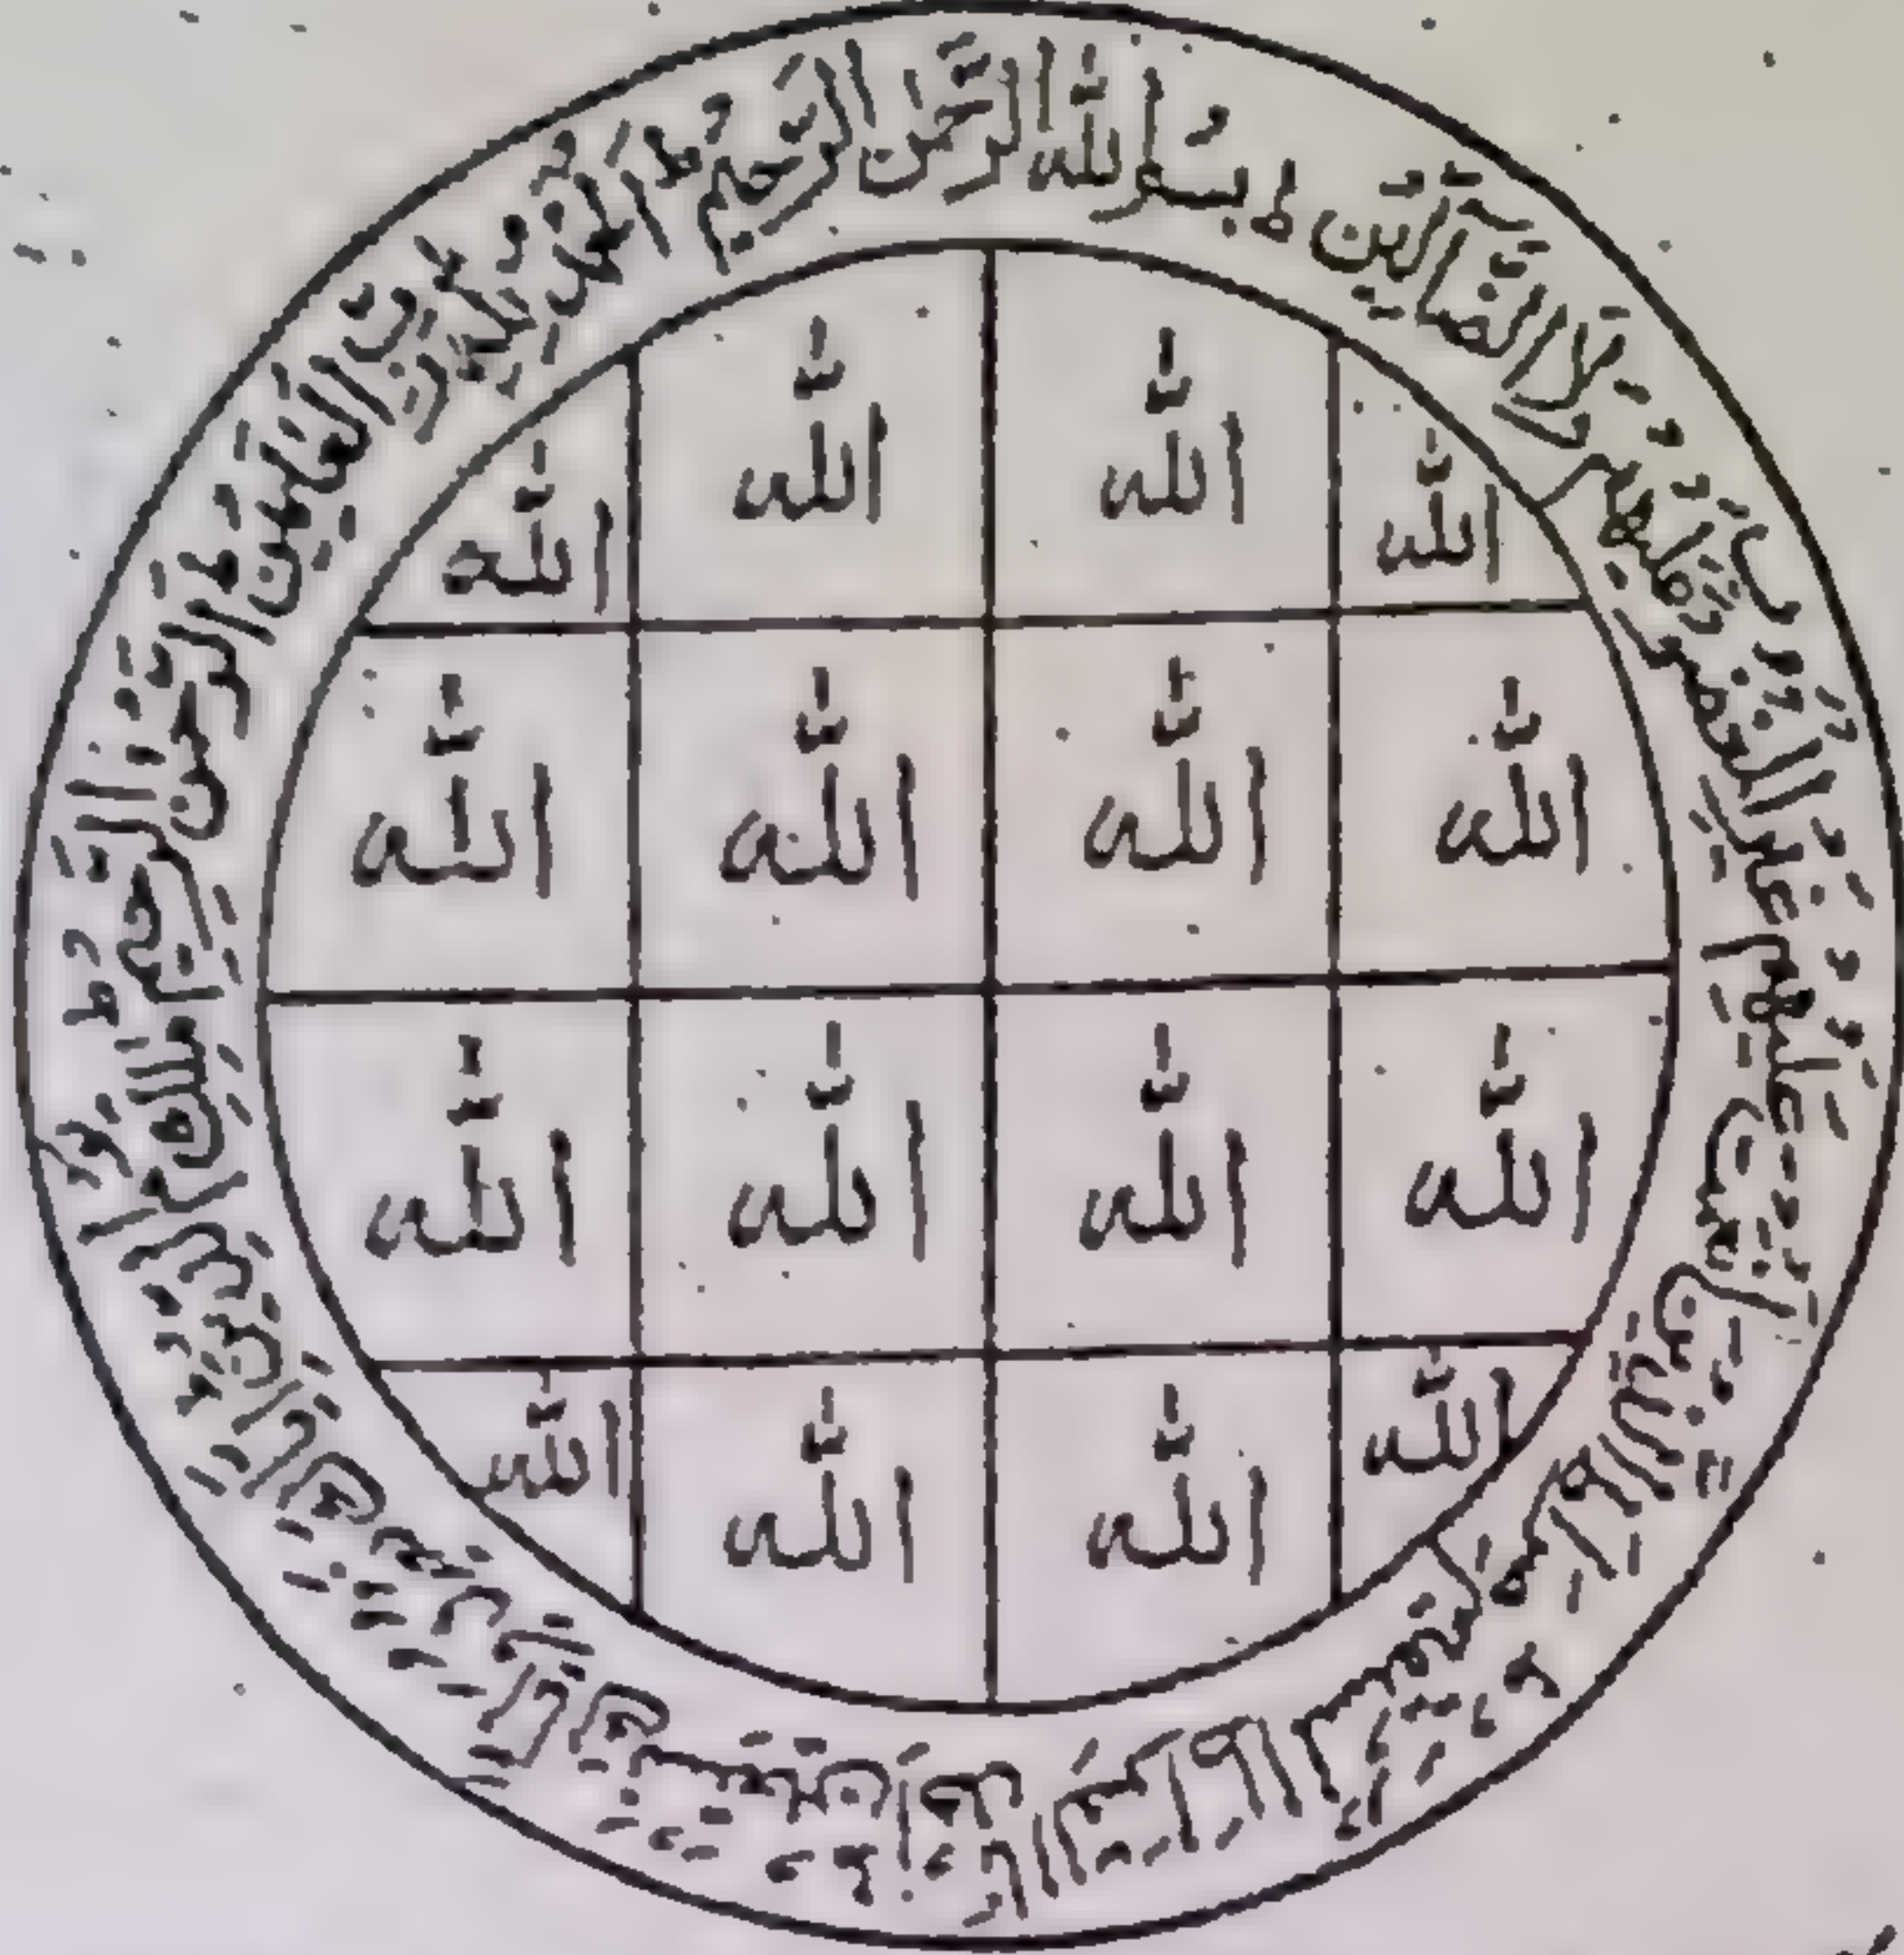 بِسْمِ اللّٰهِ الرَّحْمٰنِ الرَّحِيْمِ ط اَلْحَمْدُ لِلّٰهِ رَبِّ الْعٰلَمِيْنَ ط الرَّحْمٰنِ الرَّحِيْمِ ط مٰلِكِ يَوْمِ الدِّيْنِ ط اِيَّاكَ نَعْبُدُ وَاِيَّاكَ نَسْتَعِيْنُ ط اِهْدِنَا الصِّرَاطَ الْمُسْتَقِيْمَ صِرَاطَ الَّذِيْنَ اَنْعَمْتَ عَلَيْهِمْ غَيْرِ الْمَغْضُوْبِ عَلَيْهِمْ وَلَا الضَّآلِّيْنَ ط
اللّٰه اللّٰه اللّٰه اللّٰه
اللّٰه اللّٰه اللّٰه اللّٰه
اللّٰه اللّٰه اللّٰه اللّٰه
اللّٰه اللّٰه اللّٰه اللّٰه